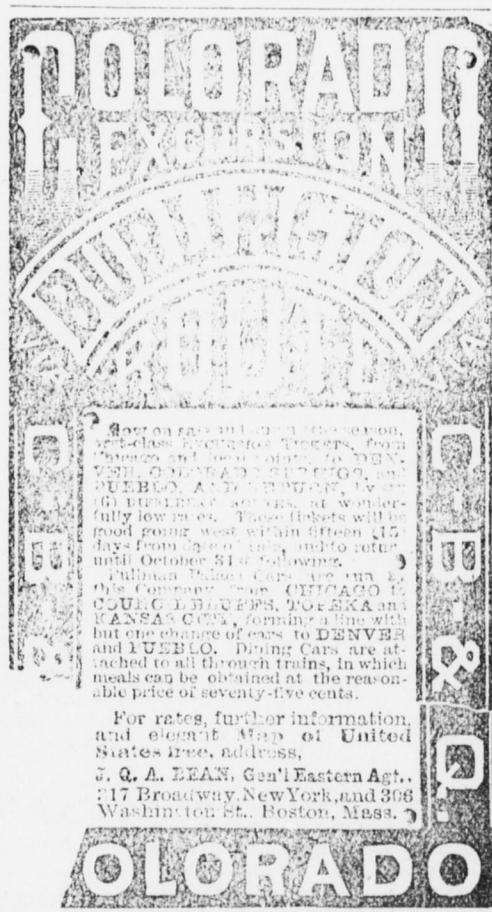 COLORADO
EXCURSION
BURLINGTON
ROUTE
C·B·&
C·B·&·Q.
Now on sale and during the season,
First-class EXCURSION TICKETS, from
Chicago and local points, to DEN-
VER, COLORADO SPRINGS, and
PUEBLO, AND RETURN, by
(6) DIFFERENT ROUTES, at wonder-
fully low rates. These tickets will be
good going west within fifteen (15)
days from date of sale, and to return
until October 31st following.
Pullman Palace Cars are run by
this Company from CHICAGO to
COUNCIL BLUFFS, TOPEKA and
KANSAS CITY, forming a line with
but one change of cars to DENVER
and PUEBLO. Dining Cars are at-
tached to all through trains, in which
meals can be obtained at the reason-
able price of seventy-five cents.
For rates, further information,
and elegant Map of United
States free, address,
J. Q. A. BEAN, Gen'l Eastern Agt.,
317 Broadway, New York, and 306
Washington St., Boston, Mass.
OLORADO